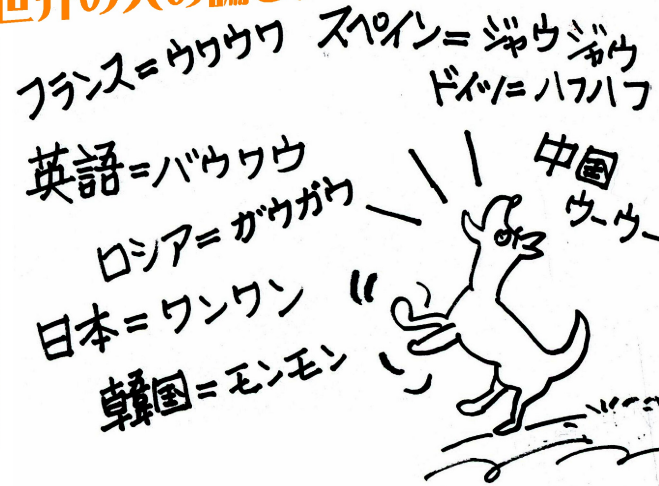 世界の人の
フランス=ウワウワ
スペイン=ジャウジャウ
ドイツ=ハフハフ
英語=バウワウ
中国
ウーウー
ロシア=ガウガウ
日本=ワンワン
韓国=モンモン